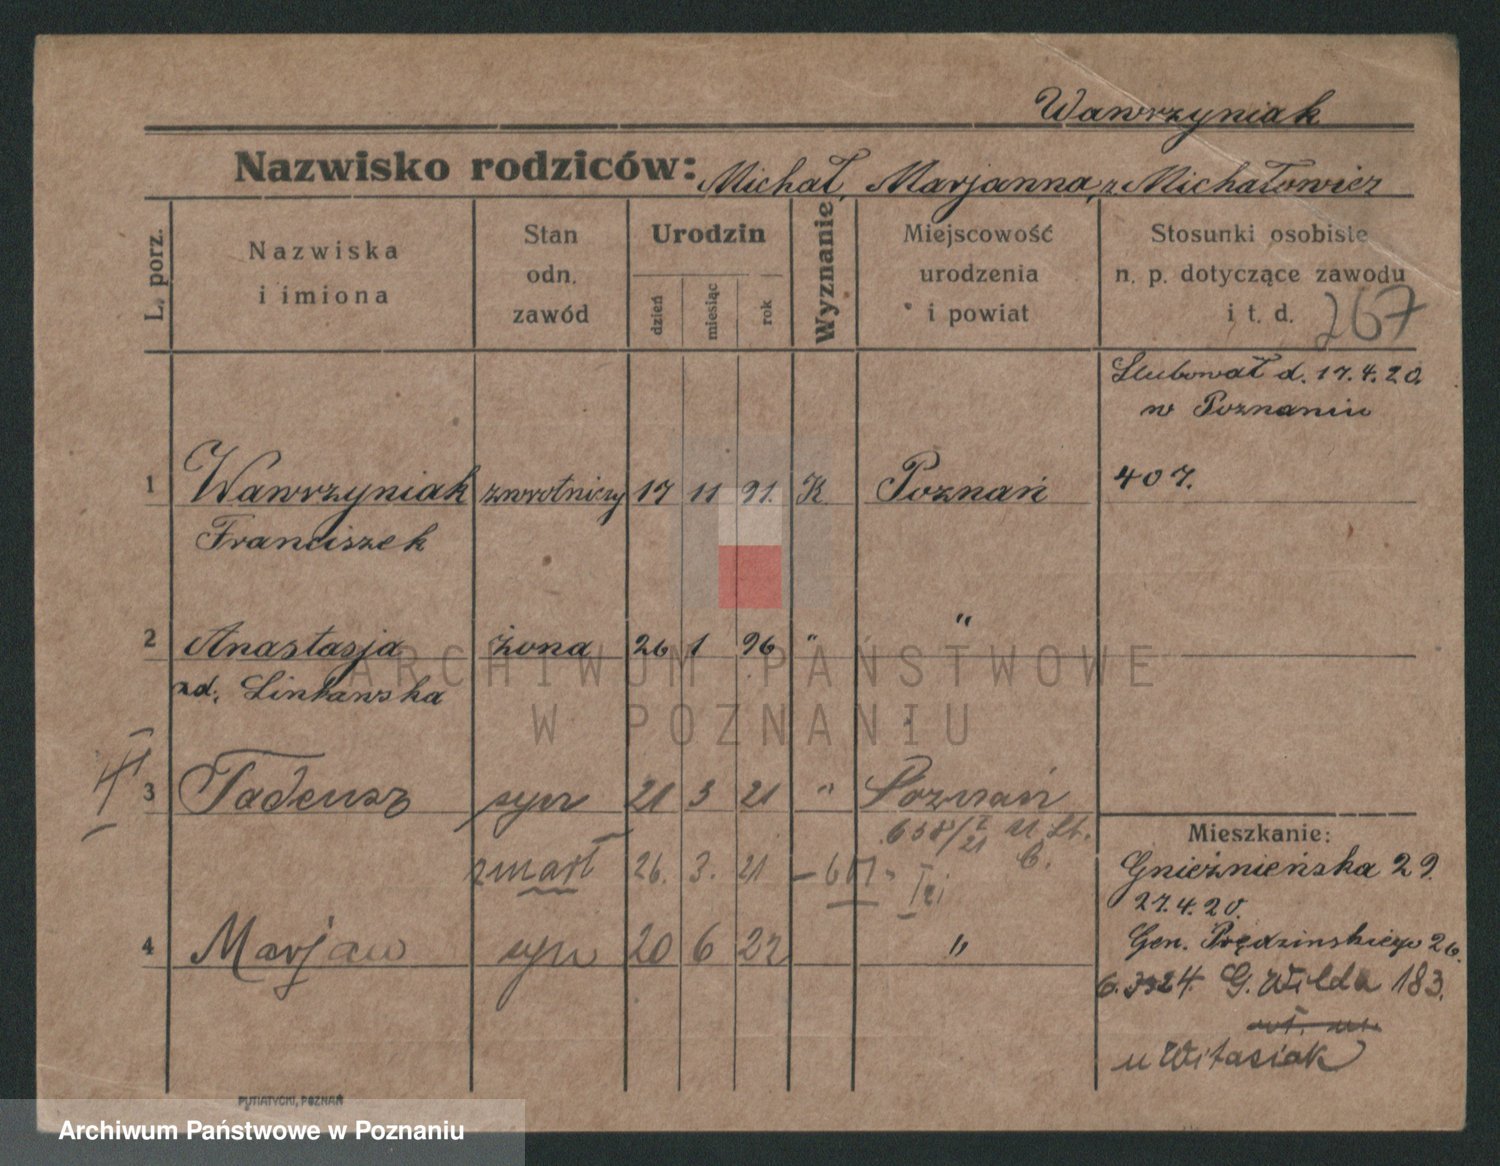 Wawrzyniak
Nazwisko rodziców: Michał, Marjanna, z Michałowicz
L. porz.
Nazwiska
i imiona
Stan
odn.
zawód
Urodzin
dzień
miesiąc
rok
Wyznanie
Miejscowość
urodzenia
i powiat
Stosunki osobiste
n. p. dotyczące zawodu
i t. d.
267
Slubował d. 17.4.20.
w Poznaniu
1 Wawrzyniak zwrotniczy 17 11 91. K. Poznań 407.
Franciszek
2 Anastasja żona 26 1 96 " "
zd. Linkawska
3 Tadeusz syn 21 3 21 " Poznań
658/21
zmarł 26. 3. 21 - 607 -
Mieszkanie:
Gnieźnieńska 29.
27.4.20.
4 Marjan syn 20 6 22 "
Gen. Prądzinskiego 26.
G. Wilda 183.
u Witasiak
PUTIATYCKI, POZNAŃ
ARCHIWUM PAŃSTWOWE
W POZNANIU
Archiwum Państwowe w Poznaniu